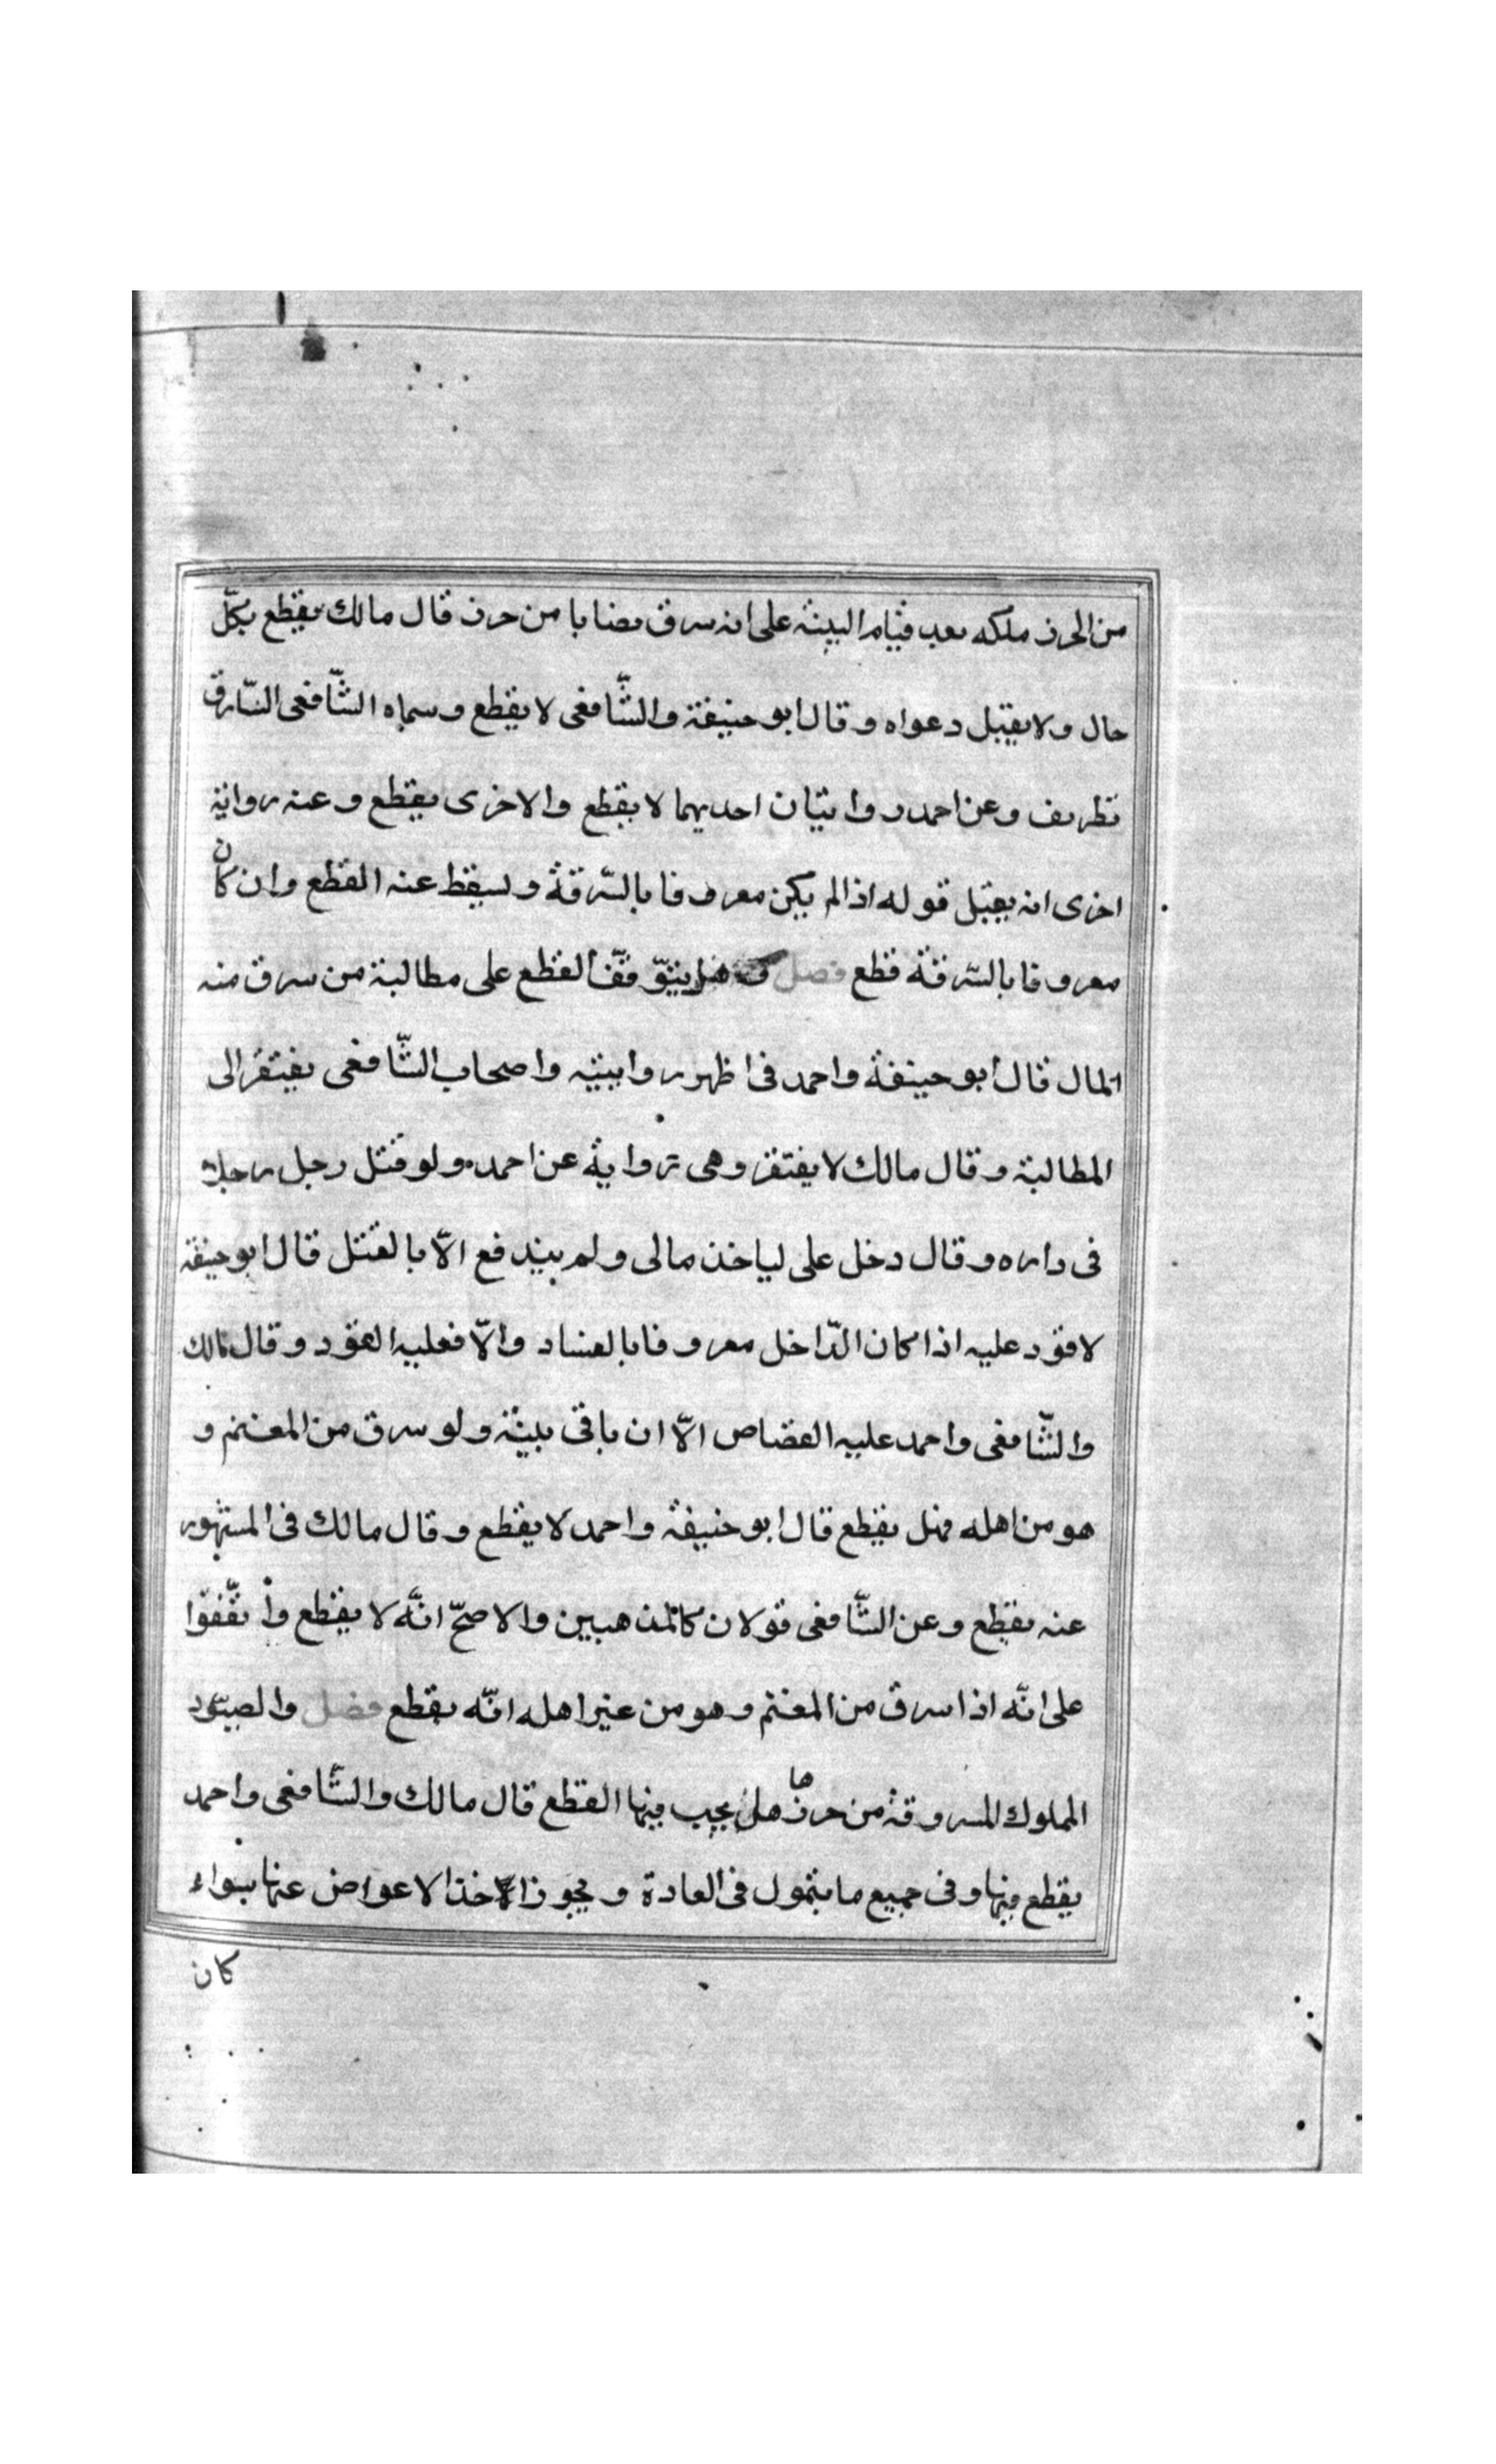 من الحرز ملكه بعد قيام البينة على انه سرق نصابا من حرز قال مالك يقطع بكلّ
حال ولا يقبل دعواه وقال ابو حنيفة والشّافعى لا يقطع وسماه الشّافعى السّارق
ظريف وعن احمد روايتان احديهما لا يقطع والاخرى يقطع وعنه رواية
اخرى انه يقبل قوله اذا لم يكن معروفا بالسّرقة ويسقط عنه القطع وان كان
معروفا بالسّرقة قطع فصل هل يتوقّف القطع على مطالبة من سرق منه
المال قال ابو حنيفة واحمد فى اظهر روايتيه واصحاب الشّافعى يفتقر الى
المطالبة وقال مالك لا يفتقر وهى رواية عن احمد ولو قتل رجل رجلا
فى داره وقال دخل على لياخذ مالى ولم يندفع الّا بالقتل قال ابو حنيفة
لا قود عليه اذا كان الدّاخل معروفا بالفساد والّا فعليه القود وقال مالك
والشّافعى واحمد عليه القصاص الّا ان ياتى ببينة ولو سرق من المغنم و
هو من اهله فهل يقطع قال ابو حنيفة واحمد لا يقطع وقال مالك فى المشهور
عنه يقطع وعن الشّافعى قولان كالمذهبين والاصحّ انّه لا يقطع واتّفقوا
على انّه اذا سرق من المغنم وهو من غير اهله انّه يقطع فصل والصيود
المملوك المسروقة من حرزها هل يجب فيها القطع قال مالك والشّافعى واحمد
يقطع فيها وفى جميع ما يتمول فى العادة ويجوز الاخذ الاعواض عنها سواء
كان